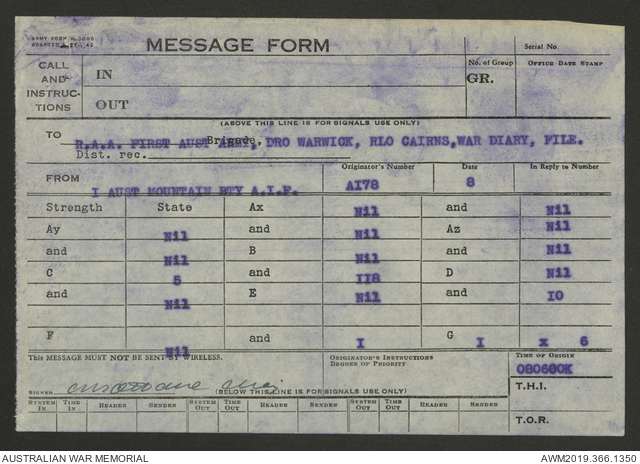 ARMY FORM W.3008
MESSAGE FORM
Serial No.
CALL AND INSTRUCTIONS
IN
No. of Group
GR.
OFFICE DATE STAMP
OUT
(ABOVE THIS LINE IS FOR SIGNALS USE ONLY)
TO R.A.A. FIRST AUST ARMY, Brigade, DRO WARWICK, RLO CAIRNS, WAR DIARY, FILE.
Dist. rec.
FROM I AUST MOUNTAIN BTY A.I.F.
Originator's Number AI78
Date 8
In Reply to Number
Strength State Ax Nil and Nil
Ay Nil and Nil Az Nil
and Nil B Nil and Nil
C 5 and II8 D Nil
and Nil E Nil and IO
F Nil and I G I x 6
This MESSAGE MUST NOT BE SENT BY WIRELESS.
ORIGINATOR'S INSTRUCTIONS
DEGREE OF PRIORITY
TIME OF ORIGIN
080600K
SIGNED
(BELOW THIS LINE IS FOR SIGNALS USE ONLY)
T.H.I.
SYSTEM IN TIME IN READER SENDER SYSTEM OUT TIME OUT READER SENDER SYSTEM OUT TIME OUT READER SENDER
T.O.R.
AUSTRALIAN WAR MEMORIAL
AWM2019.366.1350